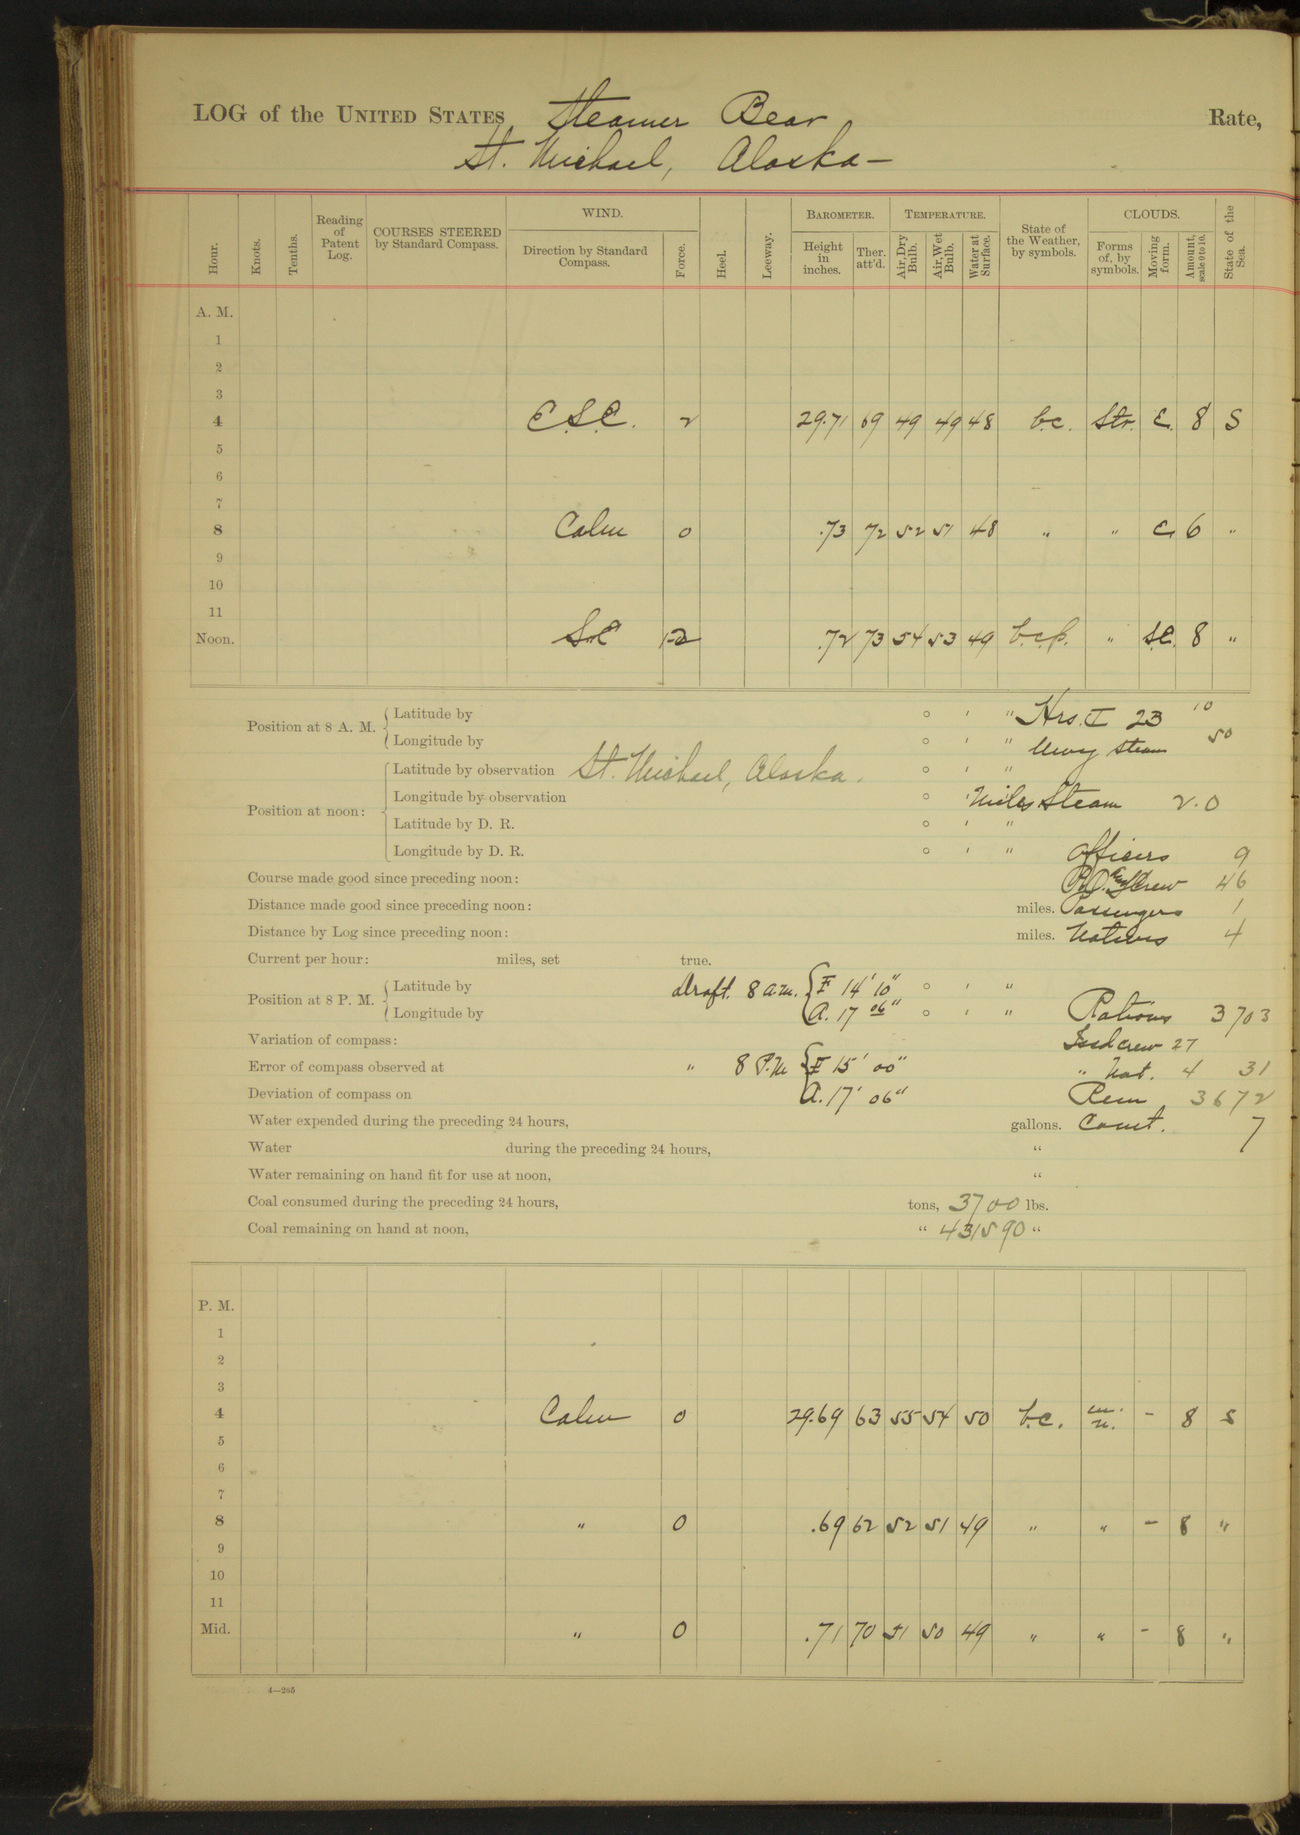 LOG of the UNITED STATES Steamer Bear Rate,
St. Michael, Alaska —
Hour. Knots. Tenths. Reading of Patent Log. COURSES STEERED by Standard Compass. WIND. Direction by Standard Compass. Force. Heel. Leeway. BAROMETER. Height in inches. Ther. att'd. TEMPERATURE. Air, Dry Bulb. Air, Wet Bulb. Water at Surface. State of the Weather, by symbols. CLOUDS. Forms of, by symbols. Moving form. Amount, scale 0 to 10. State of the Sea.
A. M.
1
2
3
4 E.S.E. 2 29.71 69 49 49 48 b.c. Str. E. 8 S
5
6
7
8 Calm 0 .73 72 52 51 48 " " E 6 "
9
10
11
Noon. S.E 1-2 .72 73 54 53 49 b.c.p. " S.E. 8 "
Position at 8 A. M. { Latitude by ° ' " Hrs. I 23 10
Longitude by ° ' " Steam 50
Position at noon: Latitude by observation St. Michael, Alaska. ° ' "
Longitude by observation ° ' Miles Steam 2.0
Latitude by D. R. ° ' "
Longitude by D. R. ° ' " Officers 9
Course made good since preceding noon: Crew 46
Distance made good since preceding noon: miles. Passengers 1
Distance by Log since preceding noon: miles. Natives 4
Current per hour: miles, set true.
Position at 8 P. M. { Latitude by Draft. 8 a.m. { F 14' 10" ° ' "
Longitude by A. 17 06" ° ' " Rations 3703
Variation of compass: Issd crew 27
Error of compass observed at " 8 P.M { F 15' 00" " Nat. 4 31
Deviation of compass on A. 17' 06" Rem 3672
Water expended during the preceding 24 hours, gallons. Comt. 7
Water during the preceding 24 hours, "
Water remaining on hand fit for use at noon, "
Coal consumed during the preceding 24 hours, tons, 3700 lbs.
Coal remaining on hand at noon, " 431590 "
P. M.
1
2
3
4 Calm 0 29.69 63 55 54 50 b.c. m. n. - 8 S
5
6
7
8 " 0 .69 62 52 51 49 " " - 8 "
9
10
11
Mid. " 0 .71 70 51 50 49 " " - 8 "
4—265